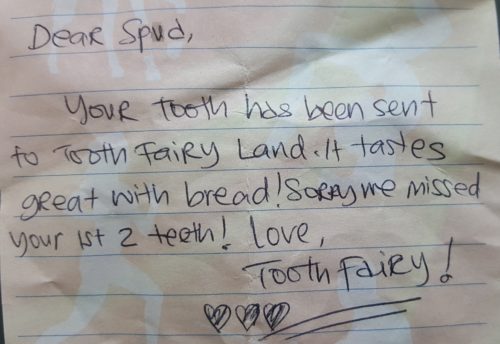 Dear Spud,
Your tooth has been sent
to Tooth Fairy Land. It tastes
great with bread! Sorry me missed
your 1st 2 teeth! Love,
Tooth Fairy!